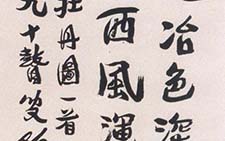 冶色深
西風渾
牡丹圖一首
九十贅叟